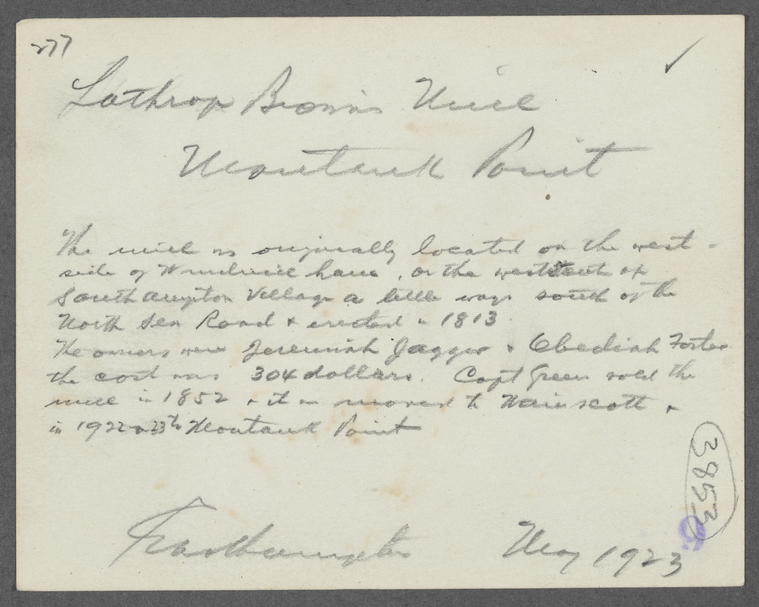 277
Lathrop Brown's Mill
Montauk Point
The mill was originally located on the west-
side of Windmill Lane, on the west of
Southampton Village a little ways south of the
North Sea Road & erected in 1813.
The owners were Jeremiah Jagger & Obediah Foster
the cost was 304 dollars. Capt Green sold the
mill in 1852 & it was moved to Wainscott &
in 1922 or 23 to Montauk Point
Easthampton May 1923
3853